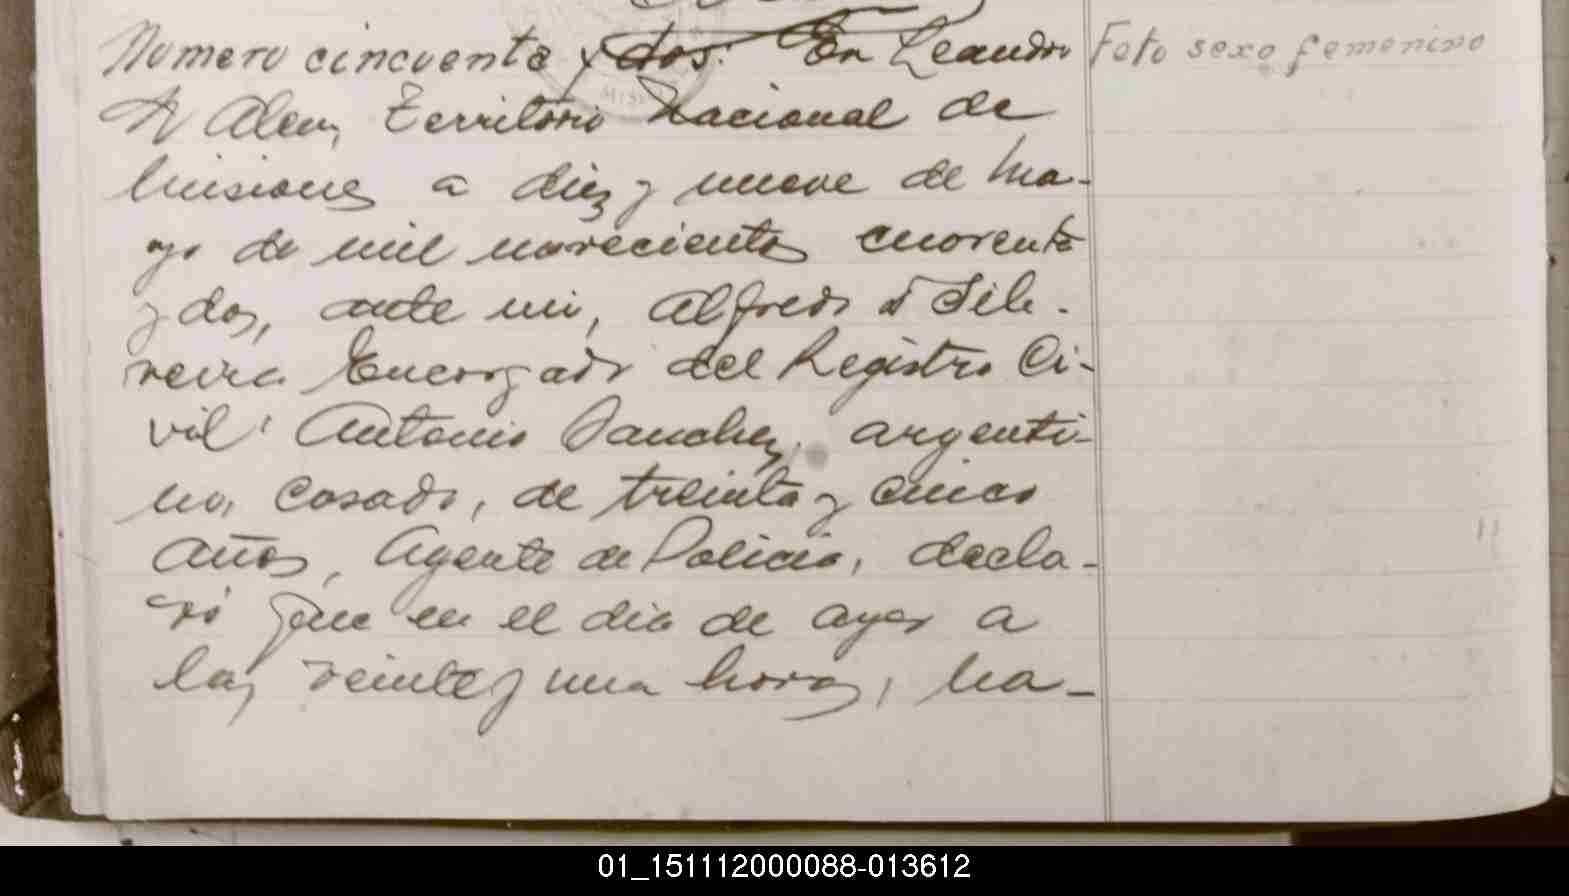 Numero cincuenta y dos: En Leandro
N Alem, Territorio Nacional de
Misiones a diez y nueve de Ma-
yo de mil novecientos cuarenta
y dos, ante mi, Alfredo Silv-
veira Encargado del Registro Ci-
vil: Antonio Sanchez, argenti-
no, casado, de treinta y cinco
años, Agente de Policia, decla-
ró que en el dia de ayer a
las veinte y una horas, na-
Feto sexo femenino
MIS
01_151112000088-013612